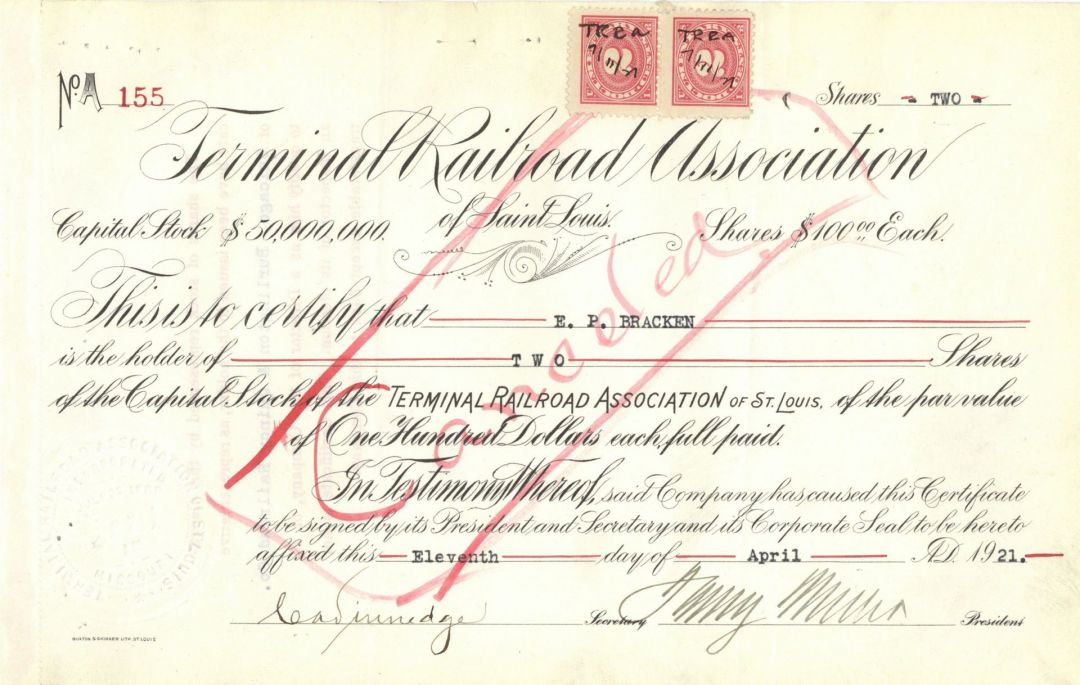 No. A 155
TRRA
TRRA
Shares TWO
Terminal Railroad Association
Capital Stock $50,000,000. of Saint Louis. Shares $100.00 Each.
This is to certify that E. P. BRACKEN
is the holder of TWO Shares
of the Capital Stock of the TERMINAL RAILROAD ASSOCIATION OF ST. LOUIS, of the par value
of One Hundred Dollars each, full paid.
Canceled
In Testimony Whereof, said Company has caused this Certificate
to be signed by its President and Secretary and its Corporate Seal to be hereto
affixed this Eleventh day of April A.D. 1921.
Secretary Henry Miller President
BUXTON & SKINNER LITH. ST. LOUIS